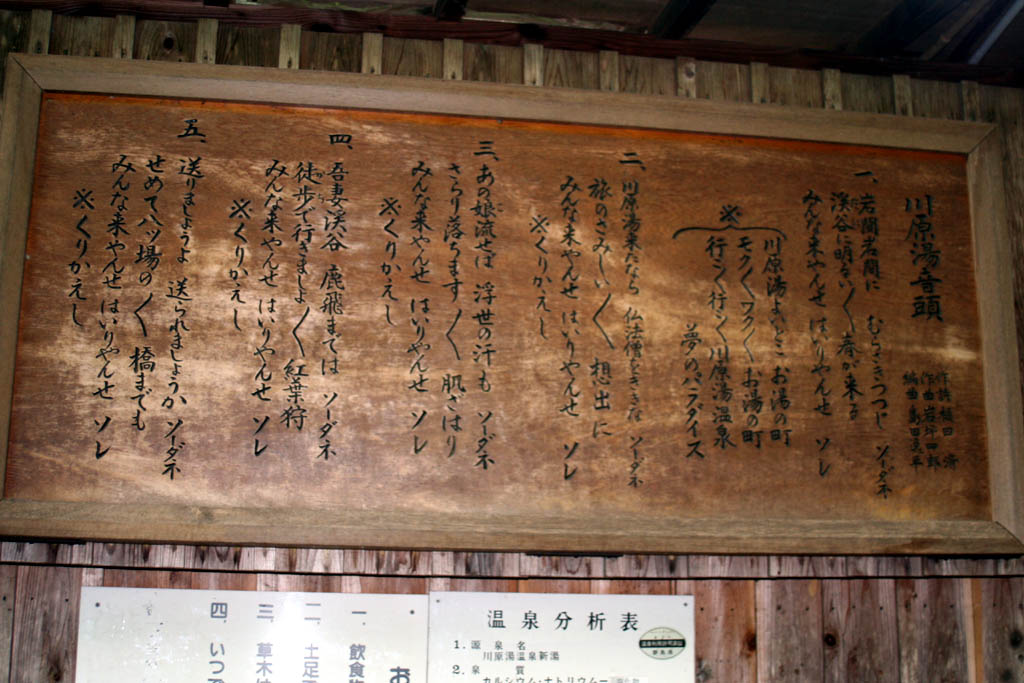 川原湯音頭
作詩 植田 済
作曲 岩坪四郎
編曲 島田
一、岩間岩間に むらさきつつじ ソーダネ
渓谷に明るい〱 春が来る
みんな来やんせ はいりやんせ ソレ
※
川原湯よいとこ お湯の町
モク〱 ワク〱 お湯の町
行こ〱 行こ〱 川原湯温泉
夢のパラダイス
二、川原湯来たなら 仏法僧をききな ソーダネ
旅のさみしい〱 想出に
みんな来やんせ はいりやんせ ソレ
※くりかえし
三、あの娘流せば 浮世の汗も ソーダネ
さらり落ちます〱 肌ざはり
みんな来やんせ はいりやんせ ソレ
※くりかえし
四、吾妻渓谷 鹿飛までは ソーダネ
徒歩で行きましよ〱 紅葉狩
みんな来やんせ はいりやんせ ソレ
※くりかえし
五、送りましようよ 送られましようか ソーダネ
せめて八ツ場の〱 橋までも
みんな来やんせ はいりやんせ ソレ
※くりかえし
お
一、飲食物
二、土足
三、草木
四、いつ
温泉分析表
1. 源泉名
川原湯温泉新湯
2. 泉質
カルシウム・ナトリウム